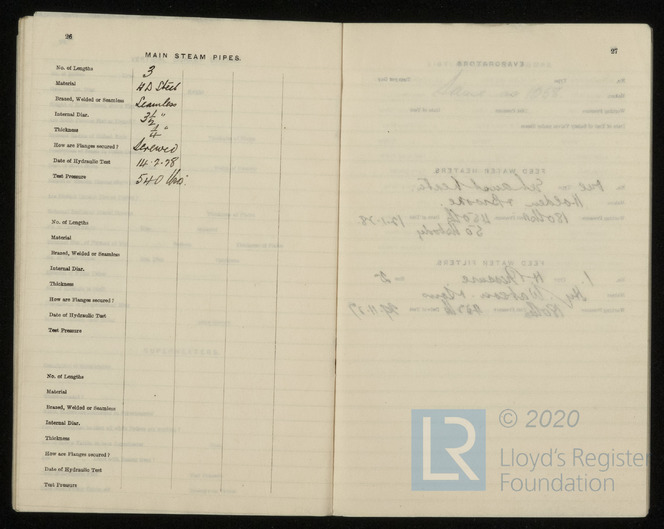 26
MAIN STEAM PIPES.
No. of Lengths 3
Material H D Steel
Brazed, Welded or Seamless Seamless
Internal Diar. 3½"
Thickness ¼"
How are Flanges secured? Screwed
Date of Hydraulic Test 14.2.28
Test Pressure 540 lbs.
No. of Lengths
Material
Brazed, Welded or Seamless
Internal Diar.
Thickness
How are Flanges secured?
Date of Hydraulic Test
Test Pressure
No. of Lengths
Material
Brazed, Welded or Seamless
Internal Diar.
Thickness
How are Flanges secured?
Date of Hydraulic Test
Test Pressure
27
LR
© 2020
Lloyd's Register
Foundation